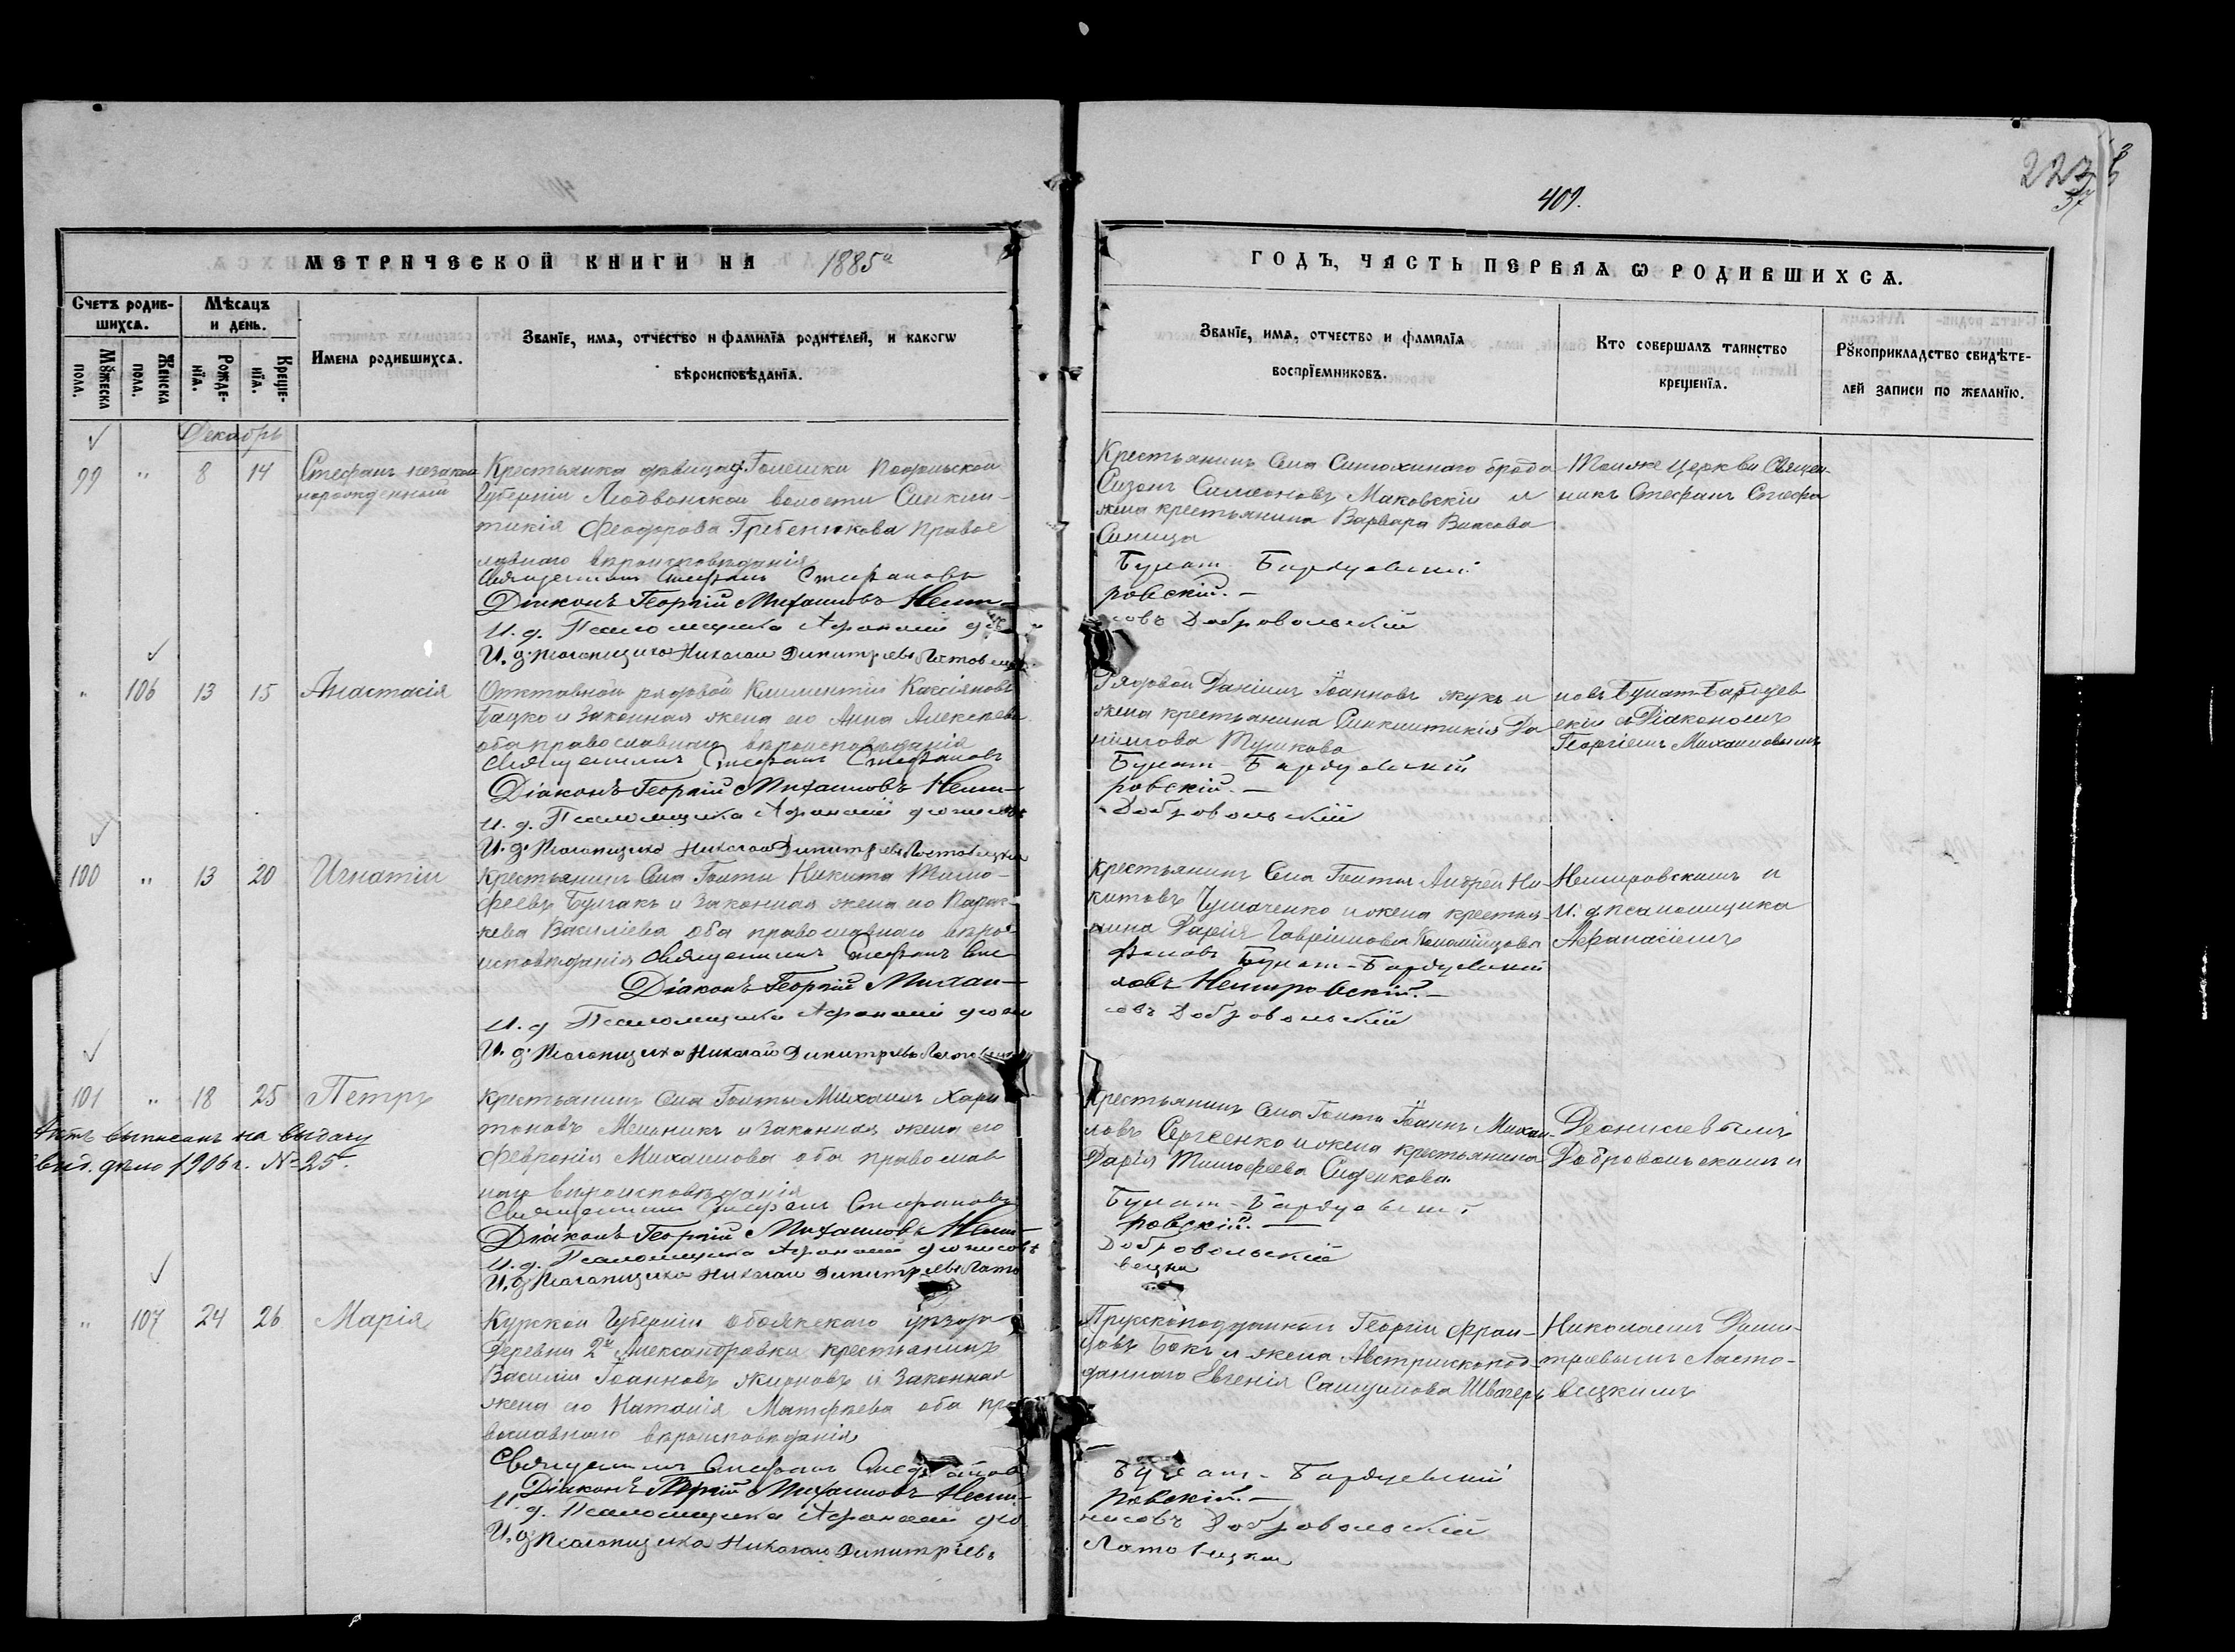 409.
223
МЕТРИЧЕСКОЙ КНИГИ НА 1885й
ГОДЪ, ЧАСТЬ ПЕРВАѦ Ѡ РОДИВШИХСѦ.
Счетъ родив-
шихсѧ.
Мѣсѧцъ
и день.
Мꙋжеска
пола.
Женска
пола.
Рожде-
нїѧ.
Креще-
нїѧ.
Имена родившихсѧ.
Званїе, имѧ, отчество и фамилїѧ родителей, и какогѡ
вѣроисповѣданїѧ.
Званїе, имѧ, отчество и фамилїѧ
воспрїемниковъ.
Кто совершалъ таинство
крещенїѧ.
Рꙋкоприкладство свидѣте-
лей записи по желанїю.
Декабрь
99 " 8 14
Стефанъ незакон
норожденный
Крестьянка Подольской
Губерніи волости Синкли-
тикія Феодорова Гребенюкова Право
славнаго вѣроисповѣданія
Священникъ Стефанъ Стефановъ
Діаконъ Георгій Михаиловъ Неми-
И. д. Псаломщика Афанасій
И. д. псаломщика Николай Димитріевъ
Крестьянинъ Села Синюхинаго брода
Сизонъ Симеоновъ Маковскій и
жена крестьянина Варвара Власова
Синица
Булат Бардуевскій
ровскій. -
совъ Добровольскій
Тояже Церкви Священ-
никъ Стефанъ Стефа
" 106 13 15
Анастасія
Отставной рядовой Климентій Кассіяновъ
Бацко и Законная жена его Анна Алексѣева
оба православнаго вѣроисповѣданія
Священникъ Стефанъ Стефановъ
Діаконъ Георгій Михаиловъ Неми-
И. д. Псаломщика Афанасій
И. д. псаломщика Николай Димитріевъ
Рядовой Даніилъ Іоанновъ Жукъ и
жена крестьянина Синклитикія Да
ніилова Тушкова
Булат-Бардуевскій
ровскій. -
Добровольскій
новъ Булат-Бардуев
скій съ Діакономъ
Георгіемъ Михаиловымъ
100 " 13 20
Игнатій
Крестьянинъ Села Голты Никита Тимо-
феевъ Булгакъ и Законная жена его Парас-
кева Василіева оба православнаго вѣро
исповѣданія Священникъ Стефанъ Сте
Діаконъ Георгій Михаи-
И. д. Псаломщика Афанасій
И. д. псаломщика Николай Димитріевъ
Крестьянинъ Села Голты Андрей Ни-
китовъ Чумаченко и жена крестья
нина Дарія Гавріилова
фановъ Булат-Бардуевскій
ловъ Немировскій. -
совъ Добровольскій
Немировскимъ и
И. д. псаломщика
Афанасіемъ
101 " 18 25
Петръ
Актъ выписанъ на выдачу
дѣло 1906 г. № 25.
Крестьянинъ Села Голты Михаилъ Хари
тоновъ Мельникъ и Законная жена его
Февронія Михаилова оба православ
наго вѣроисповѣданія
Священникъ Стефанъ Стефановъ
Діаконъ Георгій Михаиловъ Неми-
И. д. Псаломщика Афанасій
И. д. псаломщика Николай Димитріевъ Ласто
Крестьянинъ Села Голты Іоаннъ Михаи-
ловъ Сергеенко и жена крестьянина
Дарія Тимофеева Сиденкова
Булат-Бардуевскій
ровскій. -
Добровольскій
вецкій
Діонисіевымъ
Добровольскимъ и
" 107 24 26
Марія
Курской Губерніи Обоянскаго уѣзда
деревни 2й Александровки крестьянинъ
Василій Іоанновъ Жирновъ и Законная
жена его Наталія Матфѣева оба пра
вославнаго вѣроисповѣданія
Священникъ Стефанъ Стефановъ
Діаконъ Георгій Михаиловъ Неми-
И. д. Псаломщика Афанасій Діо
И. д. псаломщика Николай Димитріевъ
Прусскоподданный Георгій Фран-
цовъ Бокъ и жена Австрійскопод-
даннаго Евгенія Швагеръ
Булат-Бардуевскій
ровскій. -
нисовъ Добровольскій
Ластовецкій
Николаемъ Дими-
тріевымъ Ласто-
вецкимъ